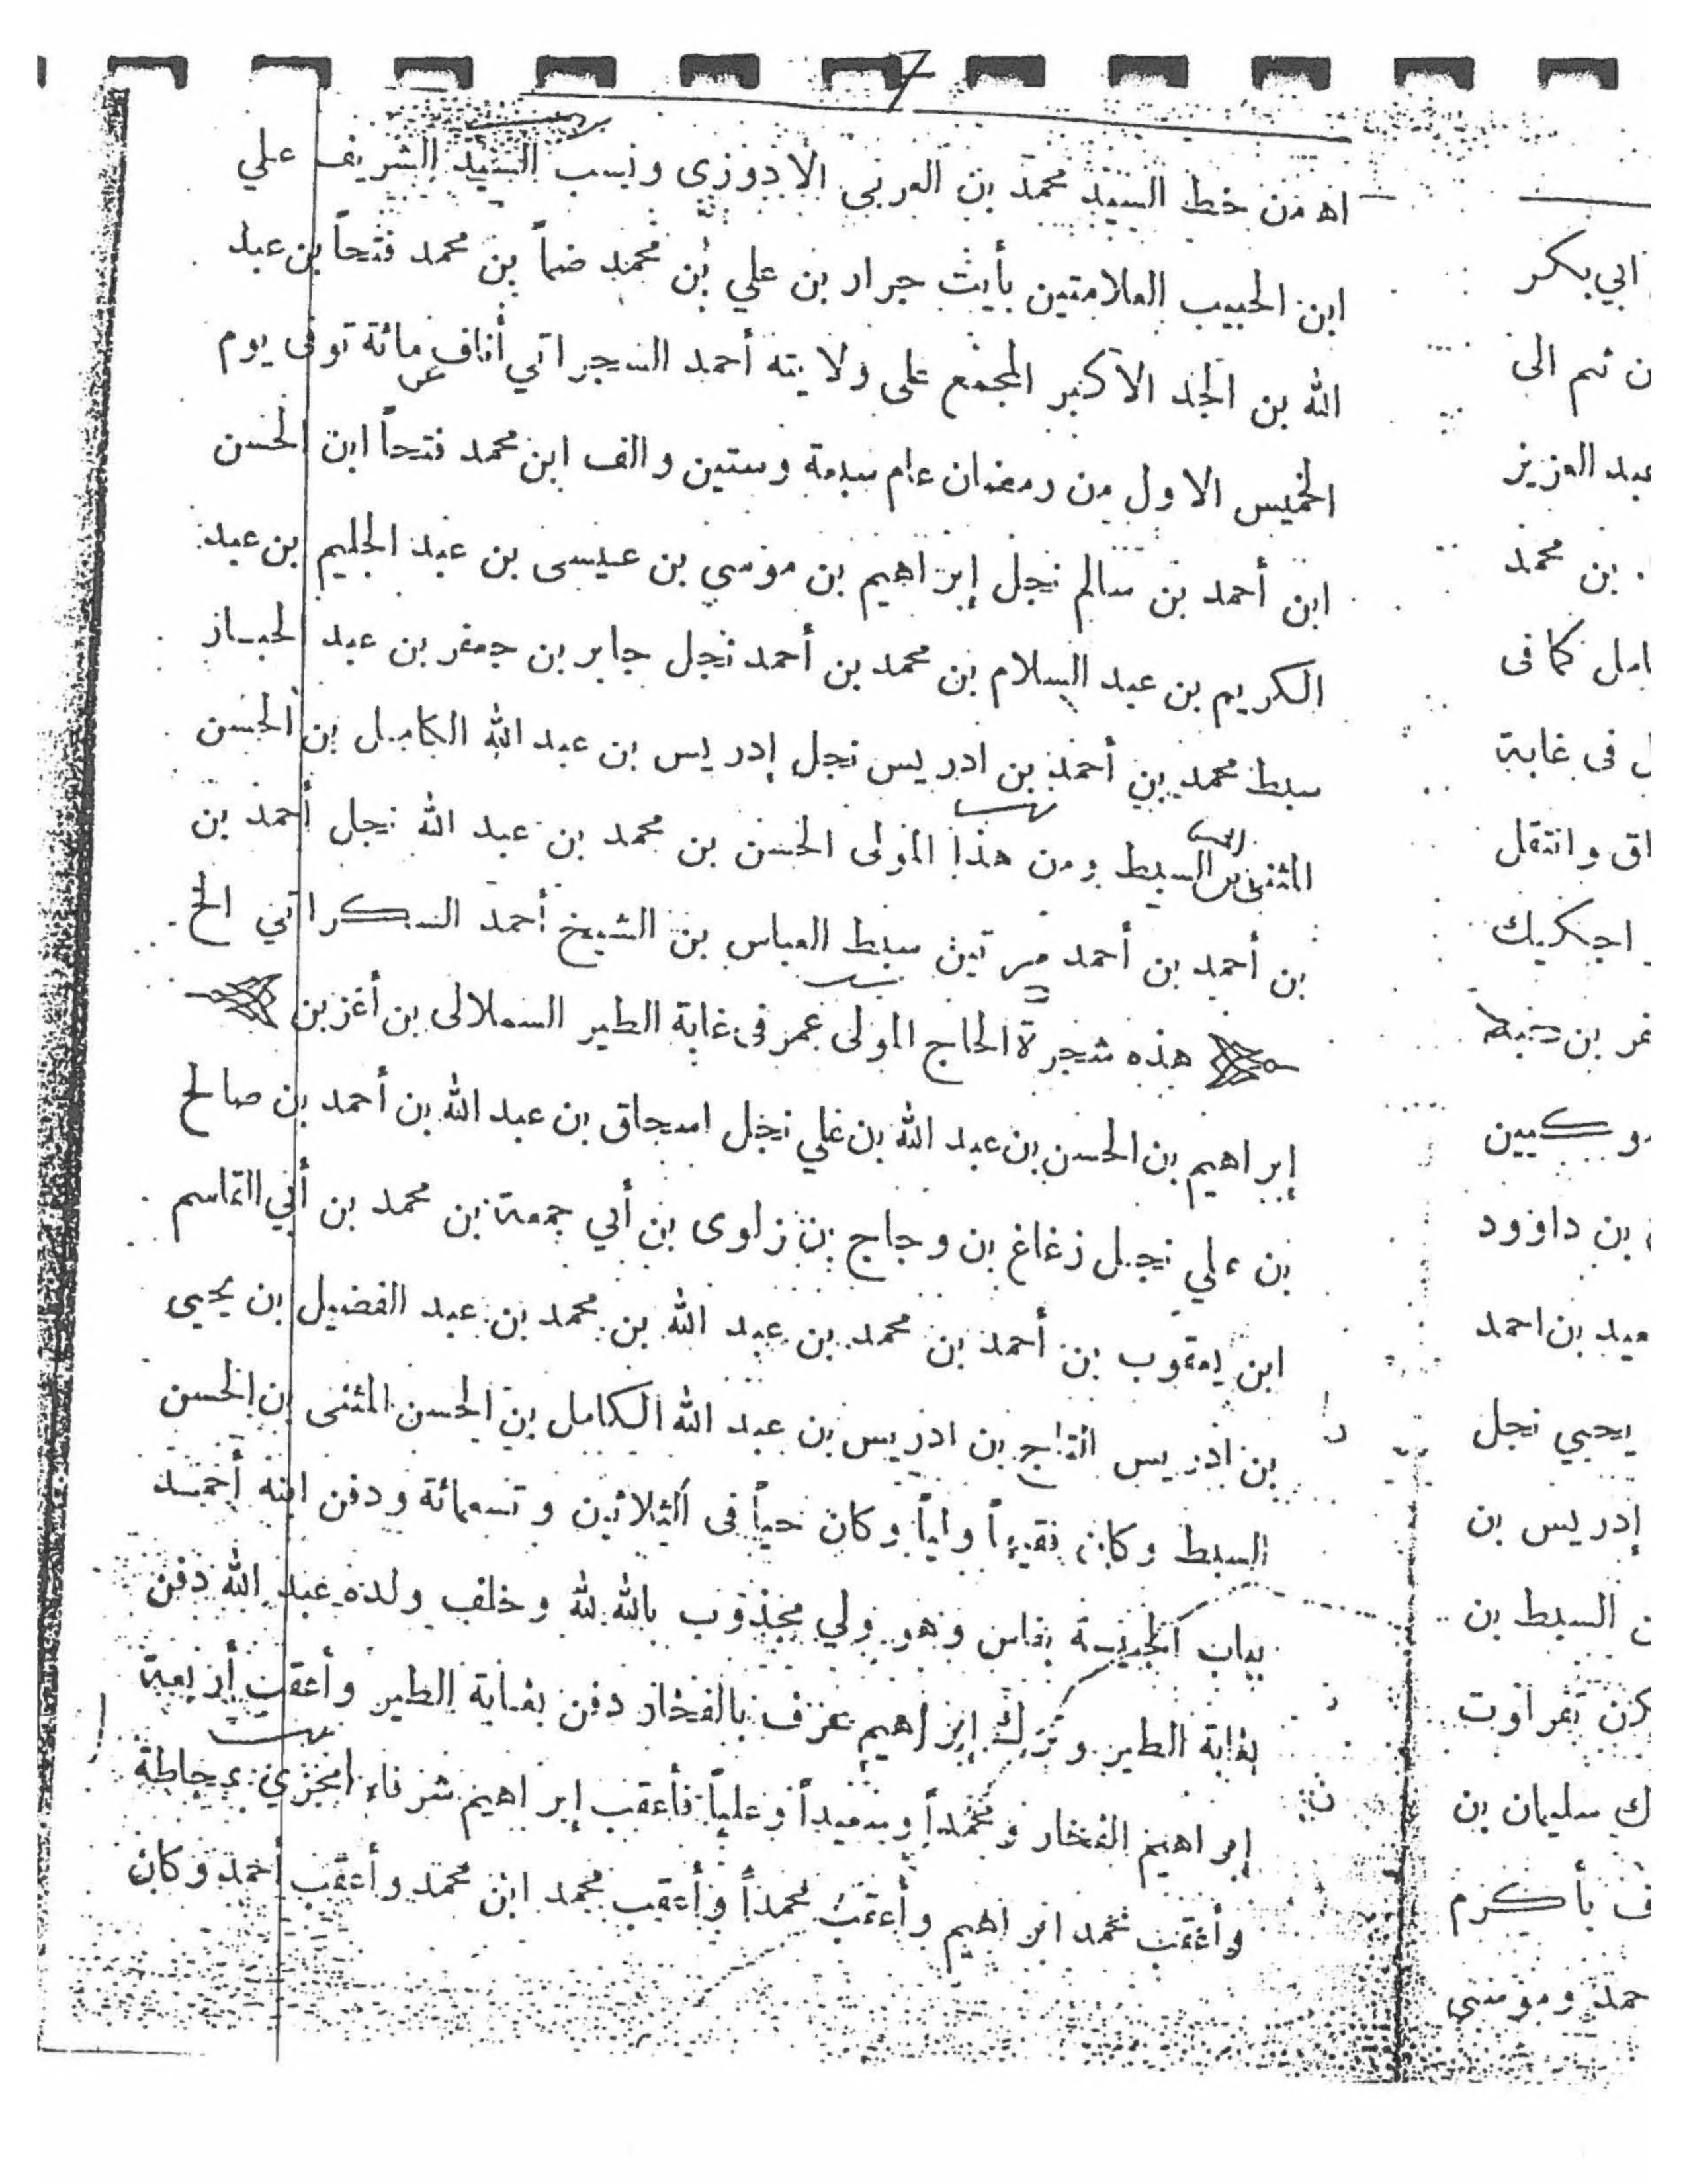 7
اه من خط السيد محمد بن العربى الادوزى ونسب السيد الشريف علي
ابن الحبيب العلامتين بأيت جرار بن علي بن محمد ضماً بن محمد فتحاً بن عبد
الله بن الجد الاكبر المجمع على ولايته أحمد السجراتي أناف عن مائة توفى يوم
الخميس الاول من رمضان عام سبعة وستين والف ابن محمد فتحاً ابن الحسن
ابن أحمد بن سالم نجل إبراهيم بن موسي بن عيسى بن عبد الحليم بن عبد
الكريم بن عبد السلام بن محمد بن أحمد نجل جابر بن جعفر بن عبد الجبار
سبط محمد بن أحمد بن ادريس نجل إدريس بن عبد الله الكامل بن الحسن
المثنى بن السبط ومن هذا المولى الحسن بن محمد بن عبد الله نجل أحمد بن
بن أحمد بن أحمد مرتين سبط العباس بن الشيخ أحمد السكراتي الخ
هذه شجرة الحاج المولى عمر فى غابة الطير السملالى بن أغزبن
إبراهيم بن الحسن بن عبد الله بن علي نجل اسحاق بن عبد الله بن أحمد بن صالح
بن علي نجل زغاغ بن وجاج بن زلوى بن أبي جمعة بن محمد بن أبي القاسم
ابن يعقوب بن أحمد بن محمد بن عبد الله بن محمد بن عبد الفضيل بن يحيى
بن ادريس التاج بن ادريس بن عبد الله الكامل بن الحسن المثنى بن الحسن
السبط وكان فقيهاً ولياً وكان حياً فى الثلاثين وتسعمائة ودفن ابنه أحمد
بباب الجيسة بفاس وهو ولي مجذوب بالله لله وخلف ولده عبد الله دفن
بغابة الطير وترك إبراهيم عرف بالفخار دفن بغابة الطير وأعقب أربعة
إبراهيم الفخار ومحمداً وسعيداً وعلياً فأعقب إبراهيم شرفاء امجزي بجاطة
وأعقب محمد ابراهيم وأعقب محمداً وأعقب محمد ابن محمد وأعقب أحمد وكان
ابي بكر
ن ثم الى
عبد العزيز
بن محمد
امل كما فى
ل فى غابة
اق وانتقل
اجكريك
فر بن
وكيين
بن داوود
عيد بن احمد
يحيي نجل
إدريس بن
ن السبط بن
كن تفراوت
ك سليمان بن
ف بأكرم
حمد وموسى